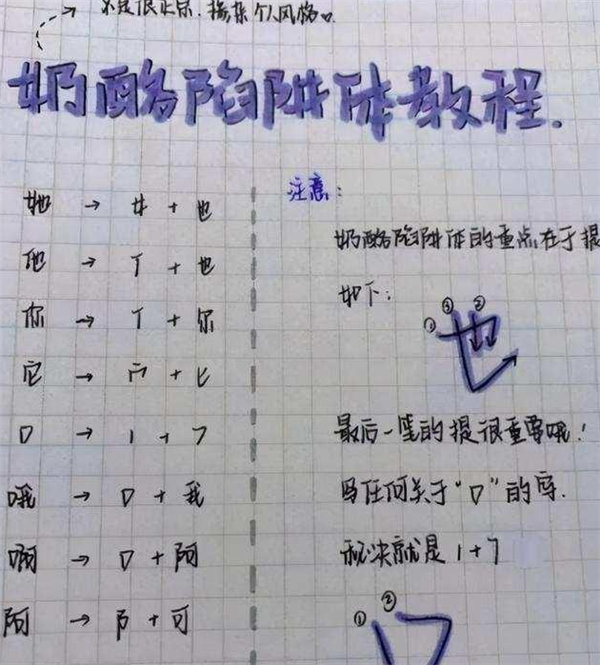 不是很正宗.掺杂个人风格。
奶酪陷阱体教程.
她 → 女 + 也
他 → 亻 + 也
你 → 亻 + 尔
它 → 宀 + 匕
口 → 1 + 7
哦 → 口 + 我
啊 → 口 + 阿
阿 → 阝 + 可
注意:
奶酪陷阱体的重点在于提
如下:
① ③ ②
也
最后一笔的提很重要哦!
写任何关于“口”的字.
秘诀就是 1+7
① ②
口